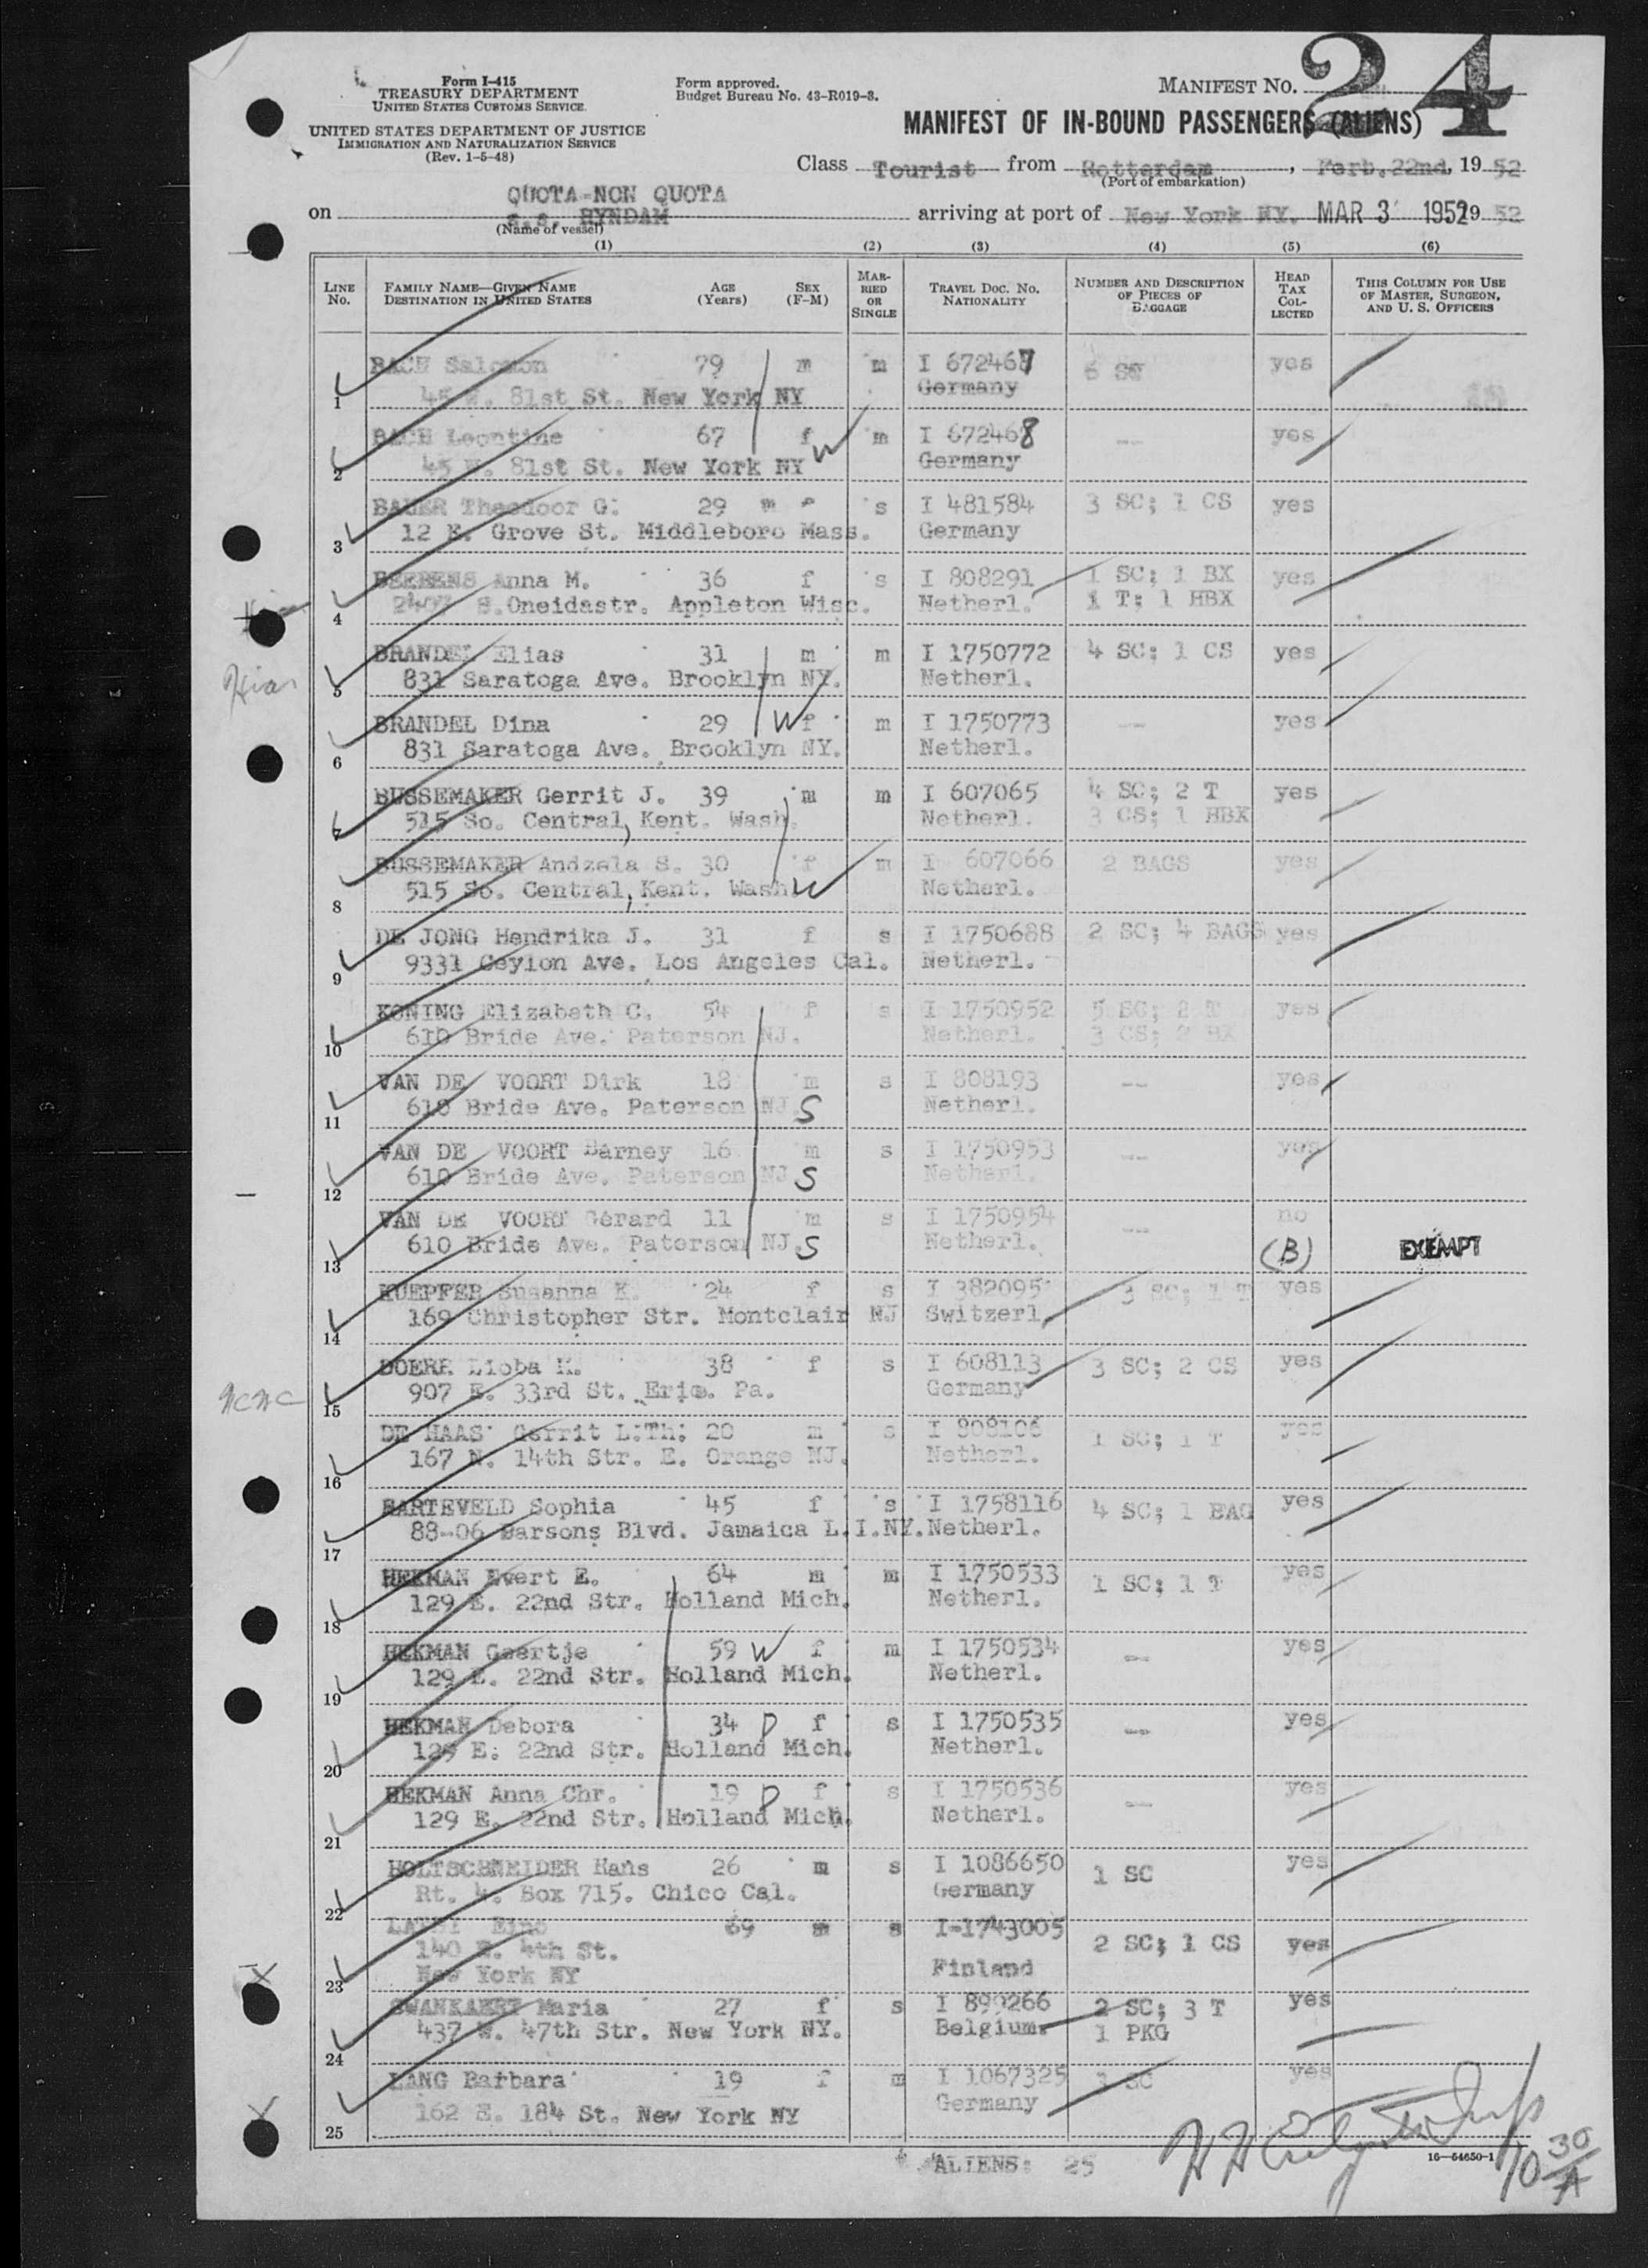 Form I-415
TREASURY DEPARTMENT
UNITED STATES CUSTOMS SERVICE
UNITED STATES DEPARTMENT OF JUSTICE
IMMIGRATION AND NATURALIZATION SERVICE
(Rev. 1-5-48)
Form approved.
Budget Bureau No. 43-R019-3.
MANIFEST NO. 24
MANIFEST OF IN-BOUND PASSENGERS (ALIENS)
Class Tourist from Rotterdam, Ferb.22nd, 19 52
(Port of embarkation)
QUOTA-NON QUOTA
on s.s. RYNDAM arriving at port of New York NY. MAR 3 1952 19 52
(Name of vessel)
(1) (2) (3) (4) (5) (6)
LINE No. FAMILY NAME—GIVEN NAME DESTINATION IN UNITED STATES AGE (Years) SEX (F-M) MARRIED OR SINGLE TRAVEL DOC. NO. NATIONALITY NUMBER AND DESCRIPTION OF PIECES OF BAGGAGE HEAD TAX COLLECTED THIS COLUMN FOR USE OF MASTER, SURGEON, AND U. S. OFFICERS
BACH Salomon 79 m m I 672467 6 SC yes
1 45 W. 81st St. New York NY Germany
BACH Leontine 67 f W m I 672468 -- yes
2 45 W. 81st St. New York NY Germany
BAUER Theodoor G. 29 m s I 481584 3 SC; 1 CS yes
3 12 E. Grove St. Middleboro Mass. Germany
BEERENS Anna M. 36 f s I 808291 1 SC; 1 BX yes
4 S.Oneidastr. Appleton Wisc. Netherl. 1 T; 1 HBX
Hias
BRANDEL Elias 31 m m I 1750772 4 SC; 1 CS yes
5 831 Saratoga Ave. Brooklyn NY. Netherl.
BRANDEL Dina 29 W f m I 1750773 -- yes
6 831 Saratoga Ave. Brooklyn NY. Netherl.
BUSSEMAKER Gerrit J. 39 m m I 607065 4 SC; 2 T yes
7 515 So. Central, Kent. Wash. Netherl. 3 CS; 1 HBX
BUSSEMAKER Andzela S. 30 f m I 607066 2 BAGS yes
8 515 So. Central, Kent. Wash. W Netherl.
DE JONG Hendrika J. 31 f s I 1750688 2 SC; 4 BAGS yes
9 9331 Ceylon Ave. Los Angeles Cal. Netherl.
KONING Elizabeth C. 54 f s I 1750952 5 SC; 2 T yes
10 610 Bride Ave. Paterson NJ. Netherl. 3 CS; 2 BX
VAN DE VOORT Dirk 18 m s I 808193 -- yes
11 610 Bride Ave. Paterson NJ S Netherl.
VAN DE VOORT Barney 16 m s I 1750953 -- yes
12 610 Bride Ave. Paterson NJ S Netherl.
VAN DE VOORT Gerard 11 m s I 1750954 -- no
13 610 Bride Ave. Paterson NJ. S Netherl. (B) EXEMPT
KUEPFER Susanna K. 24 f s I 382095 3 SC; 1 T yes
14 169 Christopher Str. Montclair NJ Switzerl.
DOERR Lioba K. 38 f s I 608113 3 SC; 2 CS yes
NCWC 15 907 E. 33rd St. Erie. Pa. Germany
DE HAAS Gerrit L.Th. 20 m s I 808106 1 SC; 1 T yes
16 167 N. 14th Str. E. Orange NJ. Netherl.
BARTEVELD Sophia 45 f s I 1758116 4 SC; 1 BAG yes
17 88-06 Parsons Blvd. Jamaica L.I.NY. Netherl.
HEKMAN Evert E. 64 m m I 1750533 1 SC; 1 T yes
18 129 E. 22nd Str. Holland Mich. Netherl.
HEKMAN Geertje 59 W f m I 1750534 -- yes
19 129 E. 22nd Str. Holland Mich. Netherl.
HEKMAN Debora 34 D f s I 1750535 -- yes
20 129 E. 22nd Str. Holland Mich. Netherl.
HEKMAN Anna Chr. 19 D f s I 1750536 -- yes
21 129 E. 22nd Str. Holland Mich. Netherl.
HOLTSCHNEIDER Hans 26 m s I 1086650 1 SC yes
22 Rt. 4. Box 715. Chico Cal. Germany
Eino 69 m s I-1743005 2 SC; 1 CS yes
140 E. 4th St. Finland
23 New York NY
SWANKAERT Maria 27 f s I 890266 2 SC; 3 T yes
24 437 W. 47th Str. New York NY. Belgium. 1 PKG
LANG Barbara 19 f m I 1067325 3 SC yes
25 162 E. 184 St. New York NY Germany
ALIENS: 25
16—54650-1
10 30/A